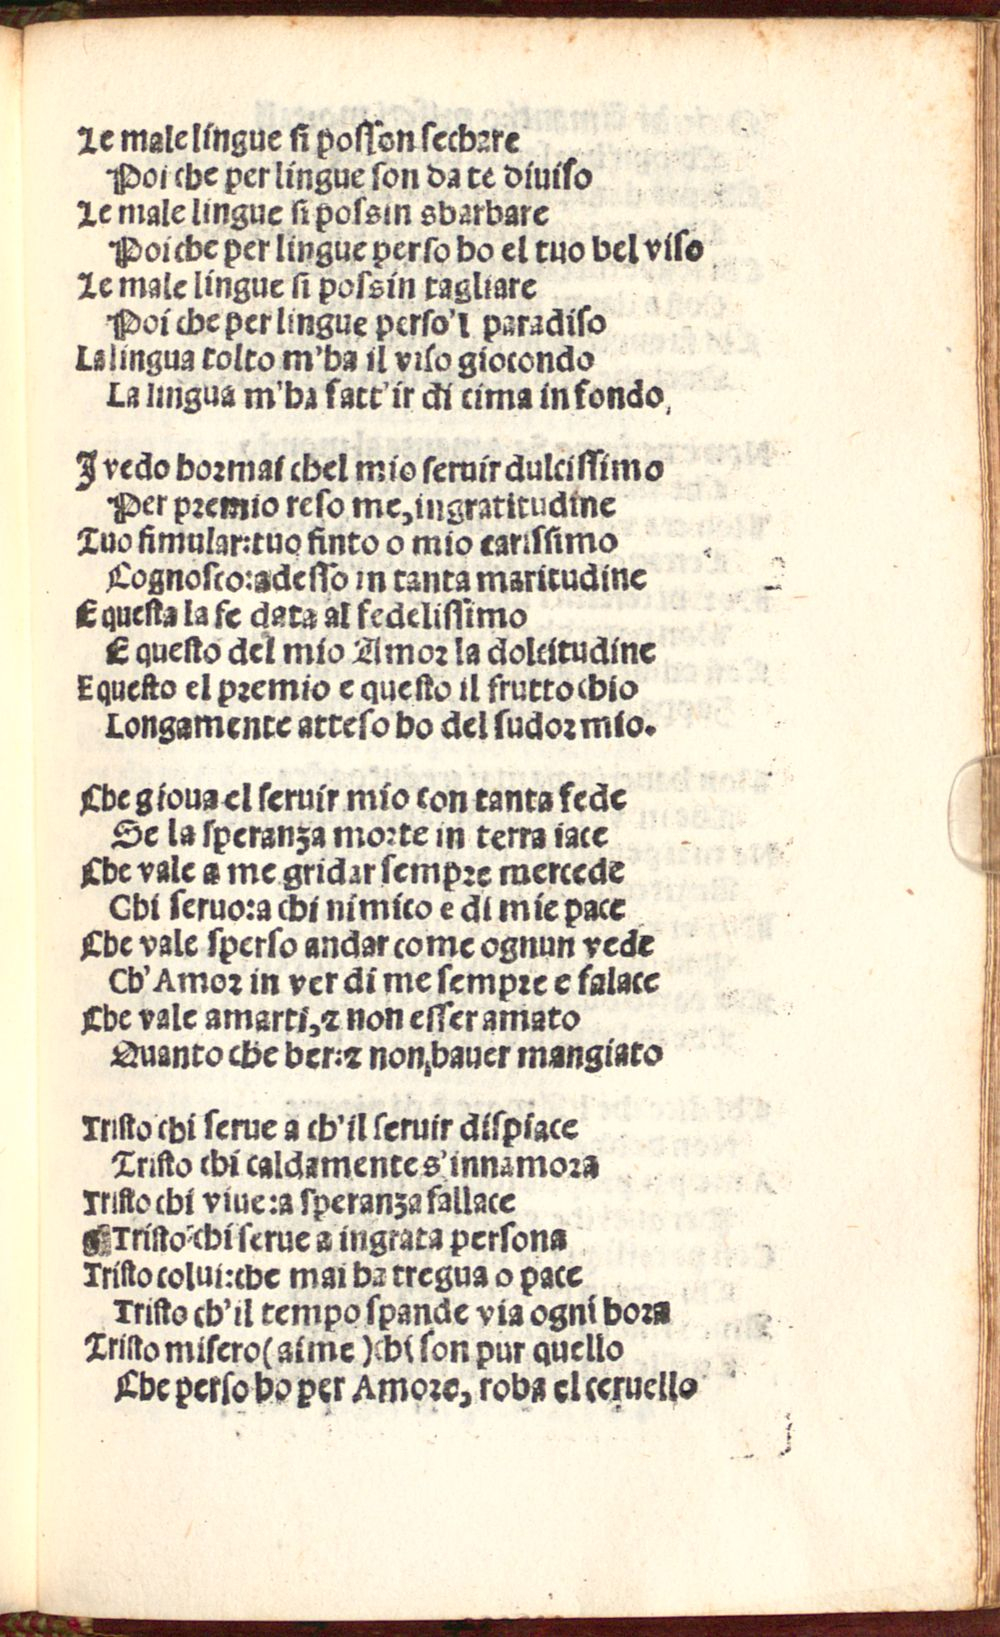 Le male lingue si posson sechare
Poi che per lingue son da te diuiso
Le male lingue si possin sbarbare
Poi che per lingue perso ho el tuo bel viso
Le male lingue si possin tagliare
Poi che per lingue perso'l paradiso
La lingua tolto m'ha il viso giocondo
La lingua m'ha fatt'ir di cima in fondo,
I vedo hormai chel mio seruir dulcissimo
Per premio reso me, ingratitudine
Tuo simular: tuo finto o mio carissimo
Cognosco: adesso in tanta maritudine
E questa la fe data al fedelissimo
E questo del mio Amor la dolcitudine
E questo el premio e questo il frutto chio
Longamente atteso ho del sudor mio.
Che gioua el seruir mio con tanta fede
Se la speranza morte in terra iace
Che vale a me gridar sempre mercede
Chi seruo: a chi nimico e di mie pace
Che vale sperso andar come ognun vede
Ch'Amor in ver di me sempre e falace
Che vale amarti, ⁊ non esser amato
Quanto che ber: ⁊ non hauer mangiato
Tristo chi serue a ch'il seruir dispiace
Tristo chi caldamente s'innamora
Tristo chi viue: a speranza fallace
Tristo chi serue a ingrata persona
Tristo colui: che mai ha tregua o pace
Tristo ch'il tempo spande via ogni hora
Tristo misero (aime) chi son pur quello
Che perso ho per Amore, roba el ceruello